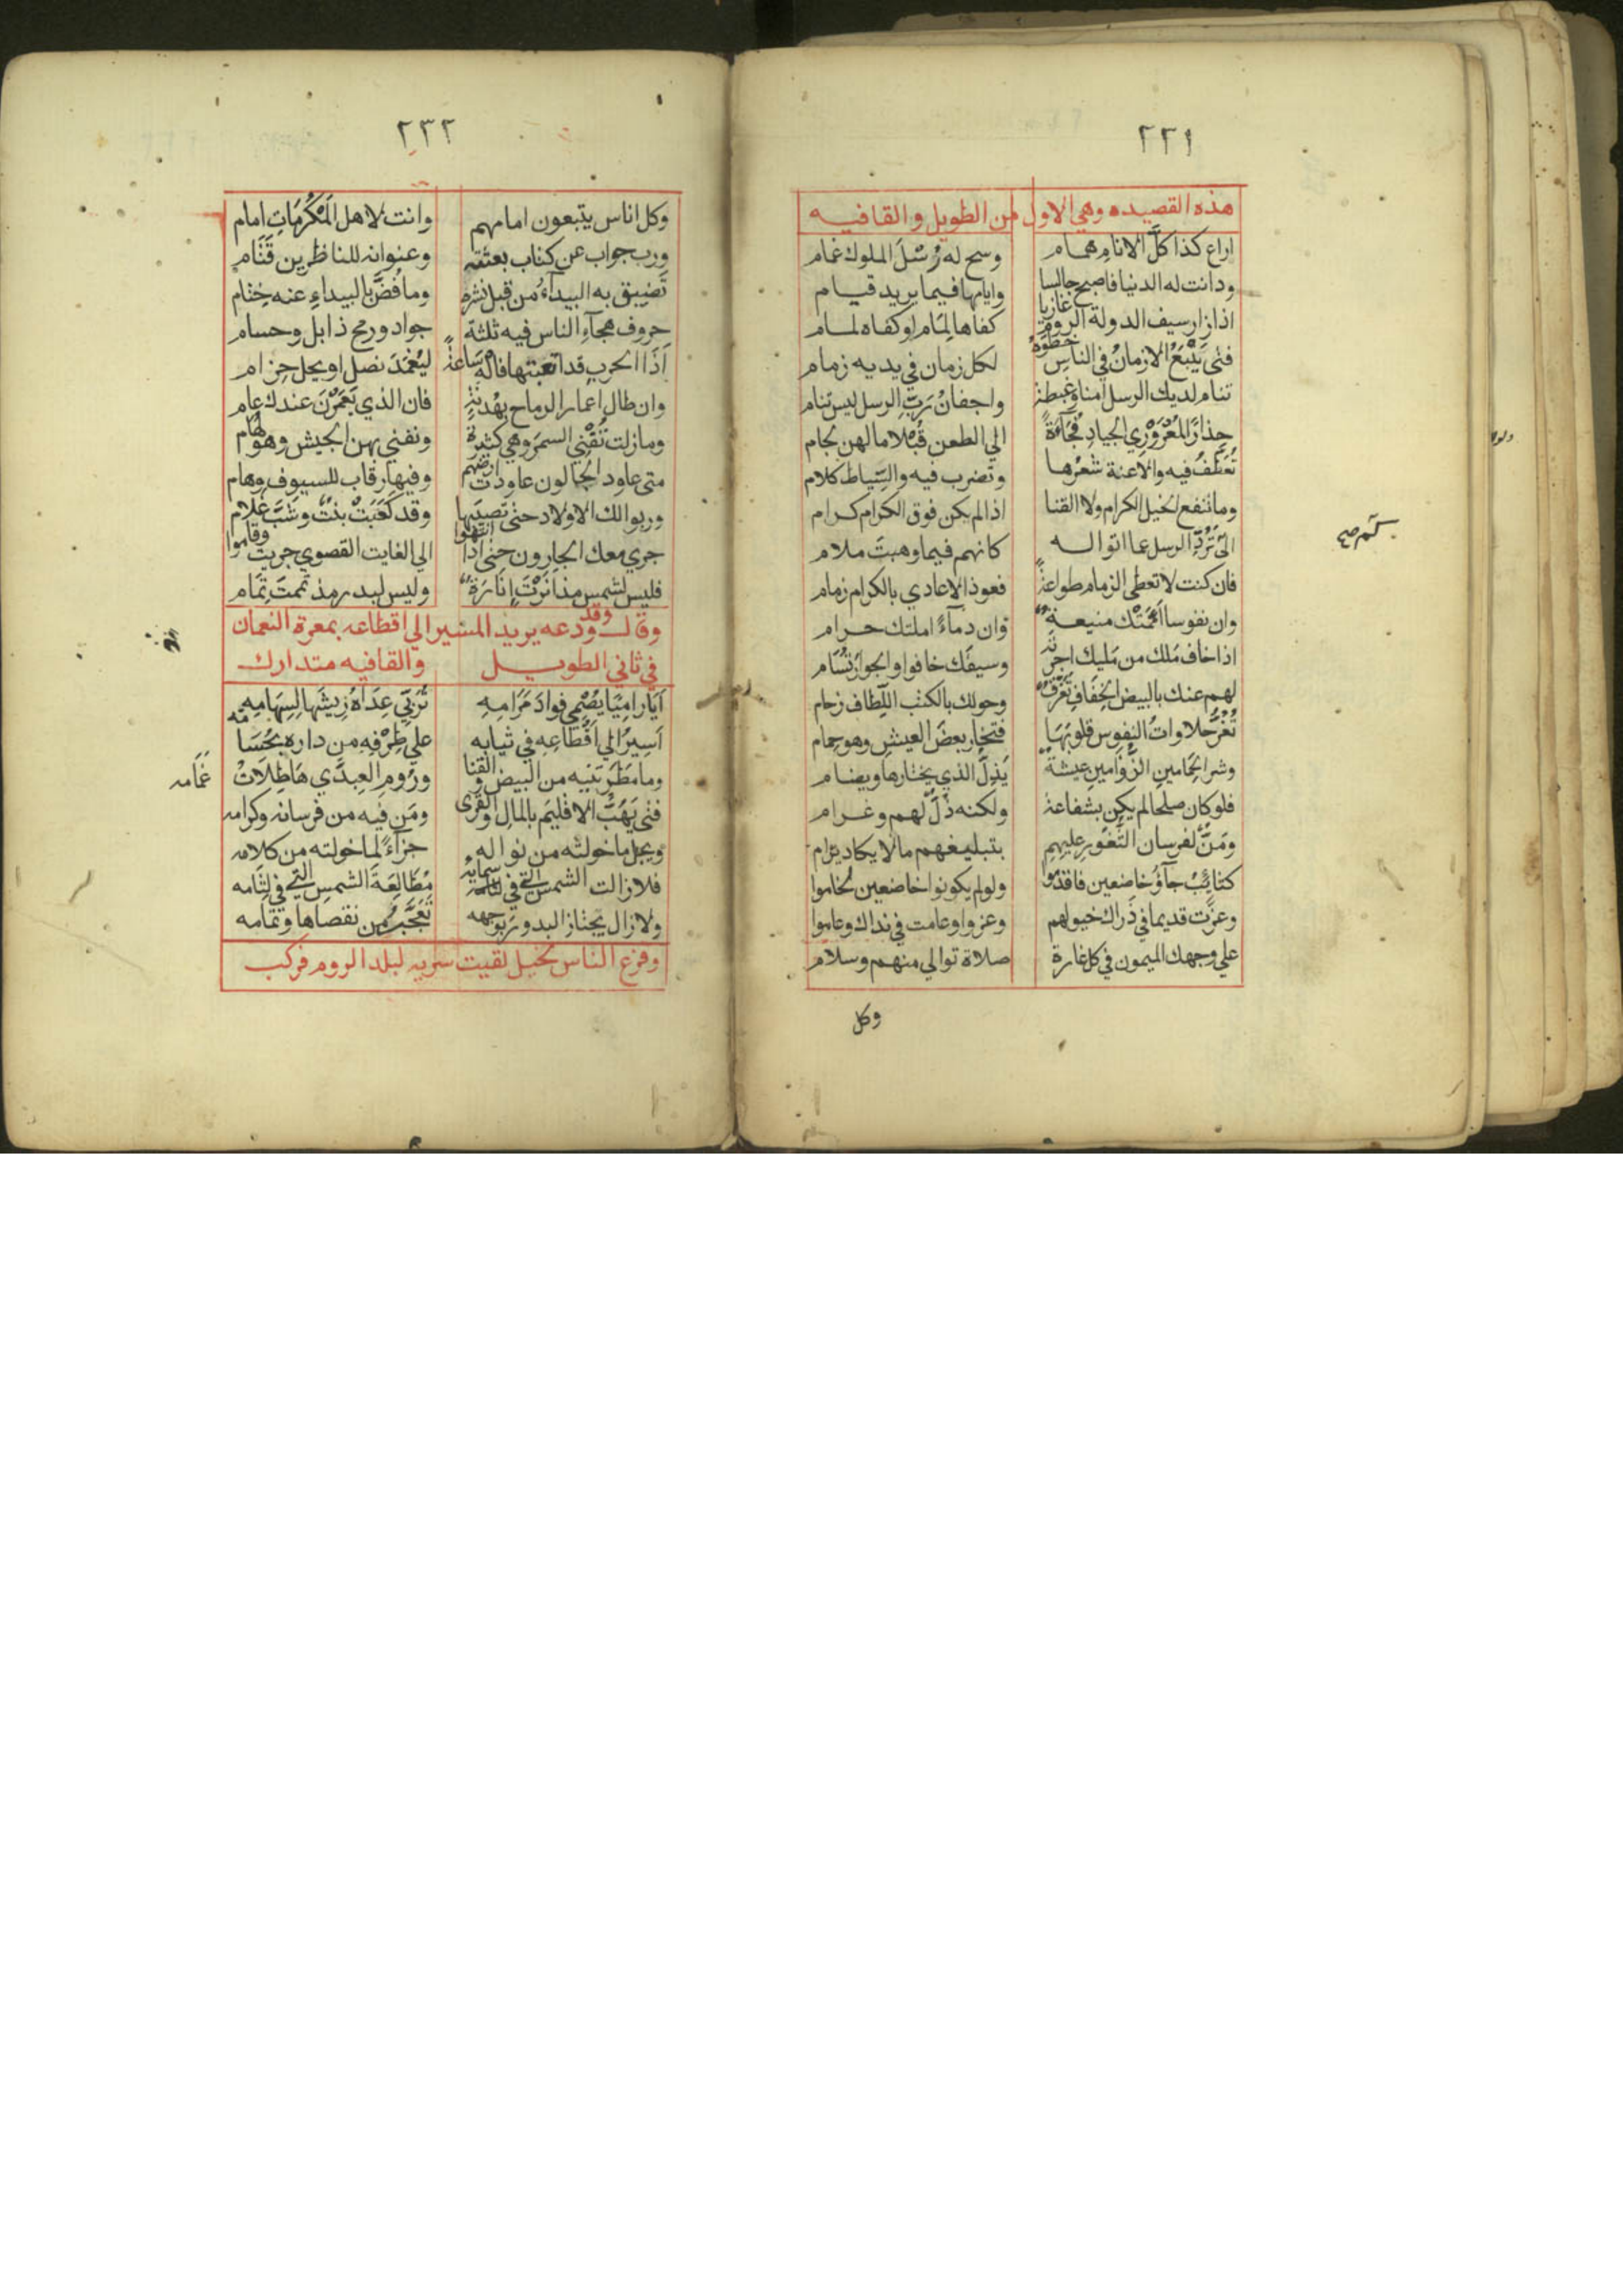 ٢٢١
هذه القصيده وهي الاول من الطويل والقافيه
اراع كذا كلَّ الانام همام وسح له رُسْلَ الملوك غمام
ودانت له الدنيا فاصبح جالسا وايامها فيما يريد قيام
اذا زار سيف الدولة الروم غازيا كفاها لِمَام لو كفاه لمام
فتى يَتْبَعُ الازمانُ في الناس خطوَه لكل زمان في يديه زمام
تنام لديك الرسل امنا وغبطة واجفانُ رَبِّ الرسل ليس تنام
حِذارًا لمُعْرَوْرِي الجيادِ فُجَآءَةً الي الطعن قُبْلا ما لهن لجام
تُعَطَّفُ فيه والاعنة شعرُها وتضرب فيه والسِّياط كلام
وما تنفع الخيل الكرام ولا القنا اذا لم يكن فوق الكرام كرام
الى تَرُدّ الرسل عما اتوا له كانهم فيما وهبتَ ملام
فان كنت لا تعطى الزمام طواعةً فعوذ الاعادي بالكرام زمام
وان نفوسا امَّمَتْك منيعةٌ وان دمآءً املتك حرام
اذا خاف مَلك من مَليك اجرته وسيفَك خافوا والجوارَ تُسَام
لهم عنك بالبيض الخِفَافِ تَفَرُّقٌ وحولك بالكتب اللِّطاف زحام
تُغُرُّ حلاواتُ النفوس قلوبَهَا فتختار بعضَ العيش وهو حمام
وشر الحِمامين الزُّوامين عيشة يَذِلُّ الذي يختارها ويضام
فلو كان صلحا لم يكن بشفاعة ولكنه ذُلٌّ لهم وغرام
ومَنٌّ لفرسان الثُّغور عليهم بتبليغهم ما لا يكاد يرام
كتايبُ جآؤُ خاضعين فاقدموا ولو لم يكونوا خاضعين لخاموا
وعزّت قديما في ذَراك خيولهم وعزوا وعامت في نداك وعاموا
علي وجهك الميمون في كل غارة صلاة توالي منهم وسلام
وكل
٢٣٢
وكل اناس يتبعون امامهم وانت لاهل المَكْرُمَاتِ امام
ورب جواب عن كتاب بعثته وعنوانه للناظرين قَتَام
تَضيق به البيدآءُ من قبل نشره وما فُضَّ بالبيداءِ عنه خِتام
حروف هجآءِ الناس فيه ثلثة جواد ورمح ذابل وحسام
اَذَا الحرب قد اتعبتها فالْهُ سَاعةً ليُغْمَدَ نصل او يحل حِزام
وان طال اعمار الرماح بهُدنةٍ فان الذي يَعْمُرْنَ عندك عام
وما زلت تُفْنِي السمرَ وهي كثيرة وتفني بهن الجيش وهو لُهَام
متى عاود الجالون عاودت ارضهم وفيها رقاب للسيوف وهام
وربوا لك الاولاد حتى تصيبَها وقد كَعَبَتْ بنتٌ وشَبَّ غلام
جري معك الجارون حتى اذا انتهوا الي الغايت القصوي جريت وقاموا
فليس لشمس مذ اَنَرْتَ اِنَارَةٌ وليس لبدر مذ تممتَ تِمَام
وقال وقد ودعه يريد المسير الي اقطاعه بمعرة النعمان
في ثاني الطويل والقافيه متدارك
اَيَا رامِيًا يُصْمِي فوادَ مَرَامِهِ تُرَبِّي عِدَاهُ رِيشَها لِسِهَامِهِ
اَسِيرُ الي اَقْطَاعِهِ في ثيابه علي طِرْفِهِ من داره بحُسَامه
وما مَطَرَتنيه من البيض والقنا ورُومِ العِبِدَّي هَاطِلَاتُ
غَمَامه
فتى يَهَبُ الاقليمَ بالمال والقُرَى ومَن فيه من فرسانه وكرامه
ويجعل ما خولته من نواله جزآءً لما خولته من كلامه
فلا زالت الشمس التي في سمائه مُطَالِعَةَ الشمسِ التي في لِثَامه
ولا زال يجتاز البدور بوجهه تَعَجَّبُ من نقصانها وتمامه
وفزع الناس لخيل لقيت سريه لبلد الروم فركب